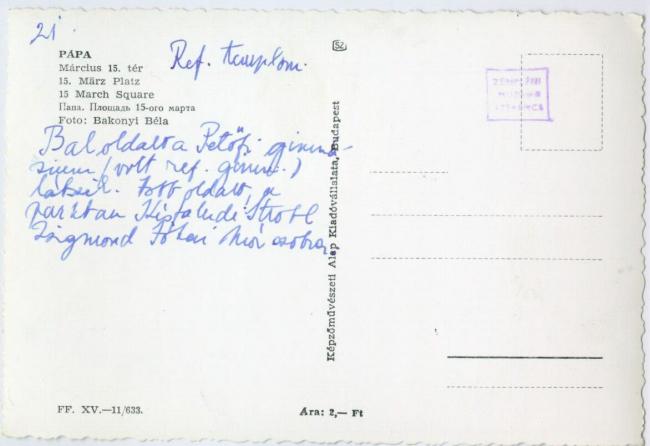 21
Ref. templom.
PÁPA
Március 15. tér
15. März Platz
15 March Square
Папа. Площадь 15-ого марта
Foto: Bakonyi Béla
Baloldalt a Petőfi gimná-
zium (volt ref. gimn.)
látszik. Jobb oldalt, a
parkban Kisfaludi Strobl
Zsigmond Jókai Mór szobra
Képzőművészeti Alap Kiadóvállalata, Budapest
FF. XV.—11/633.
Ára: 2,— Ft